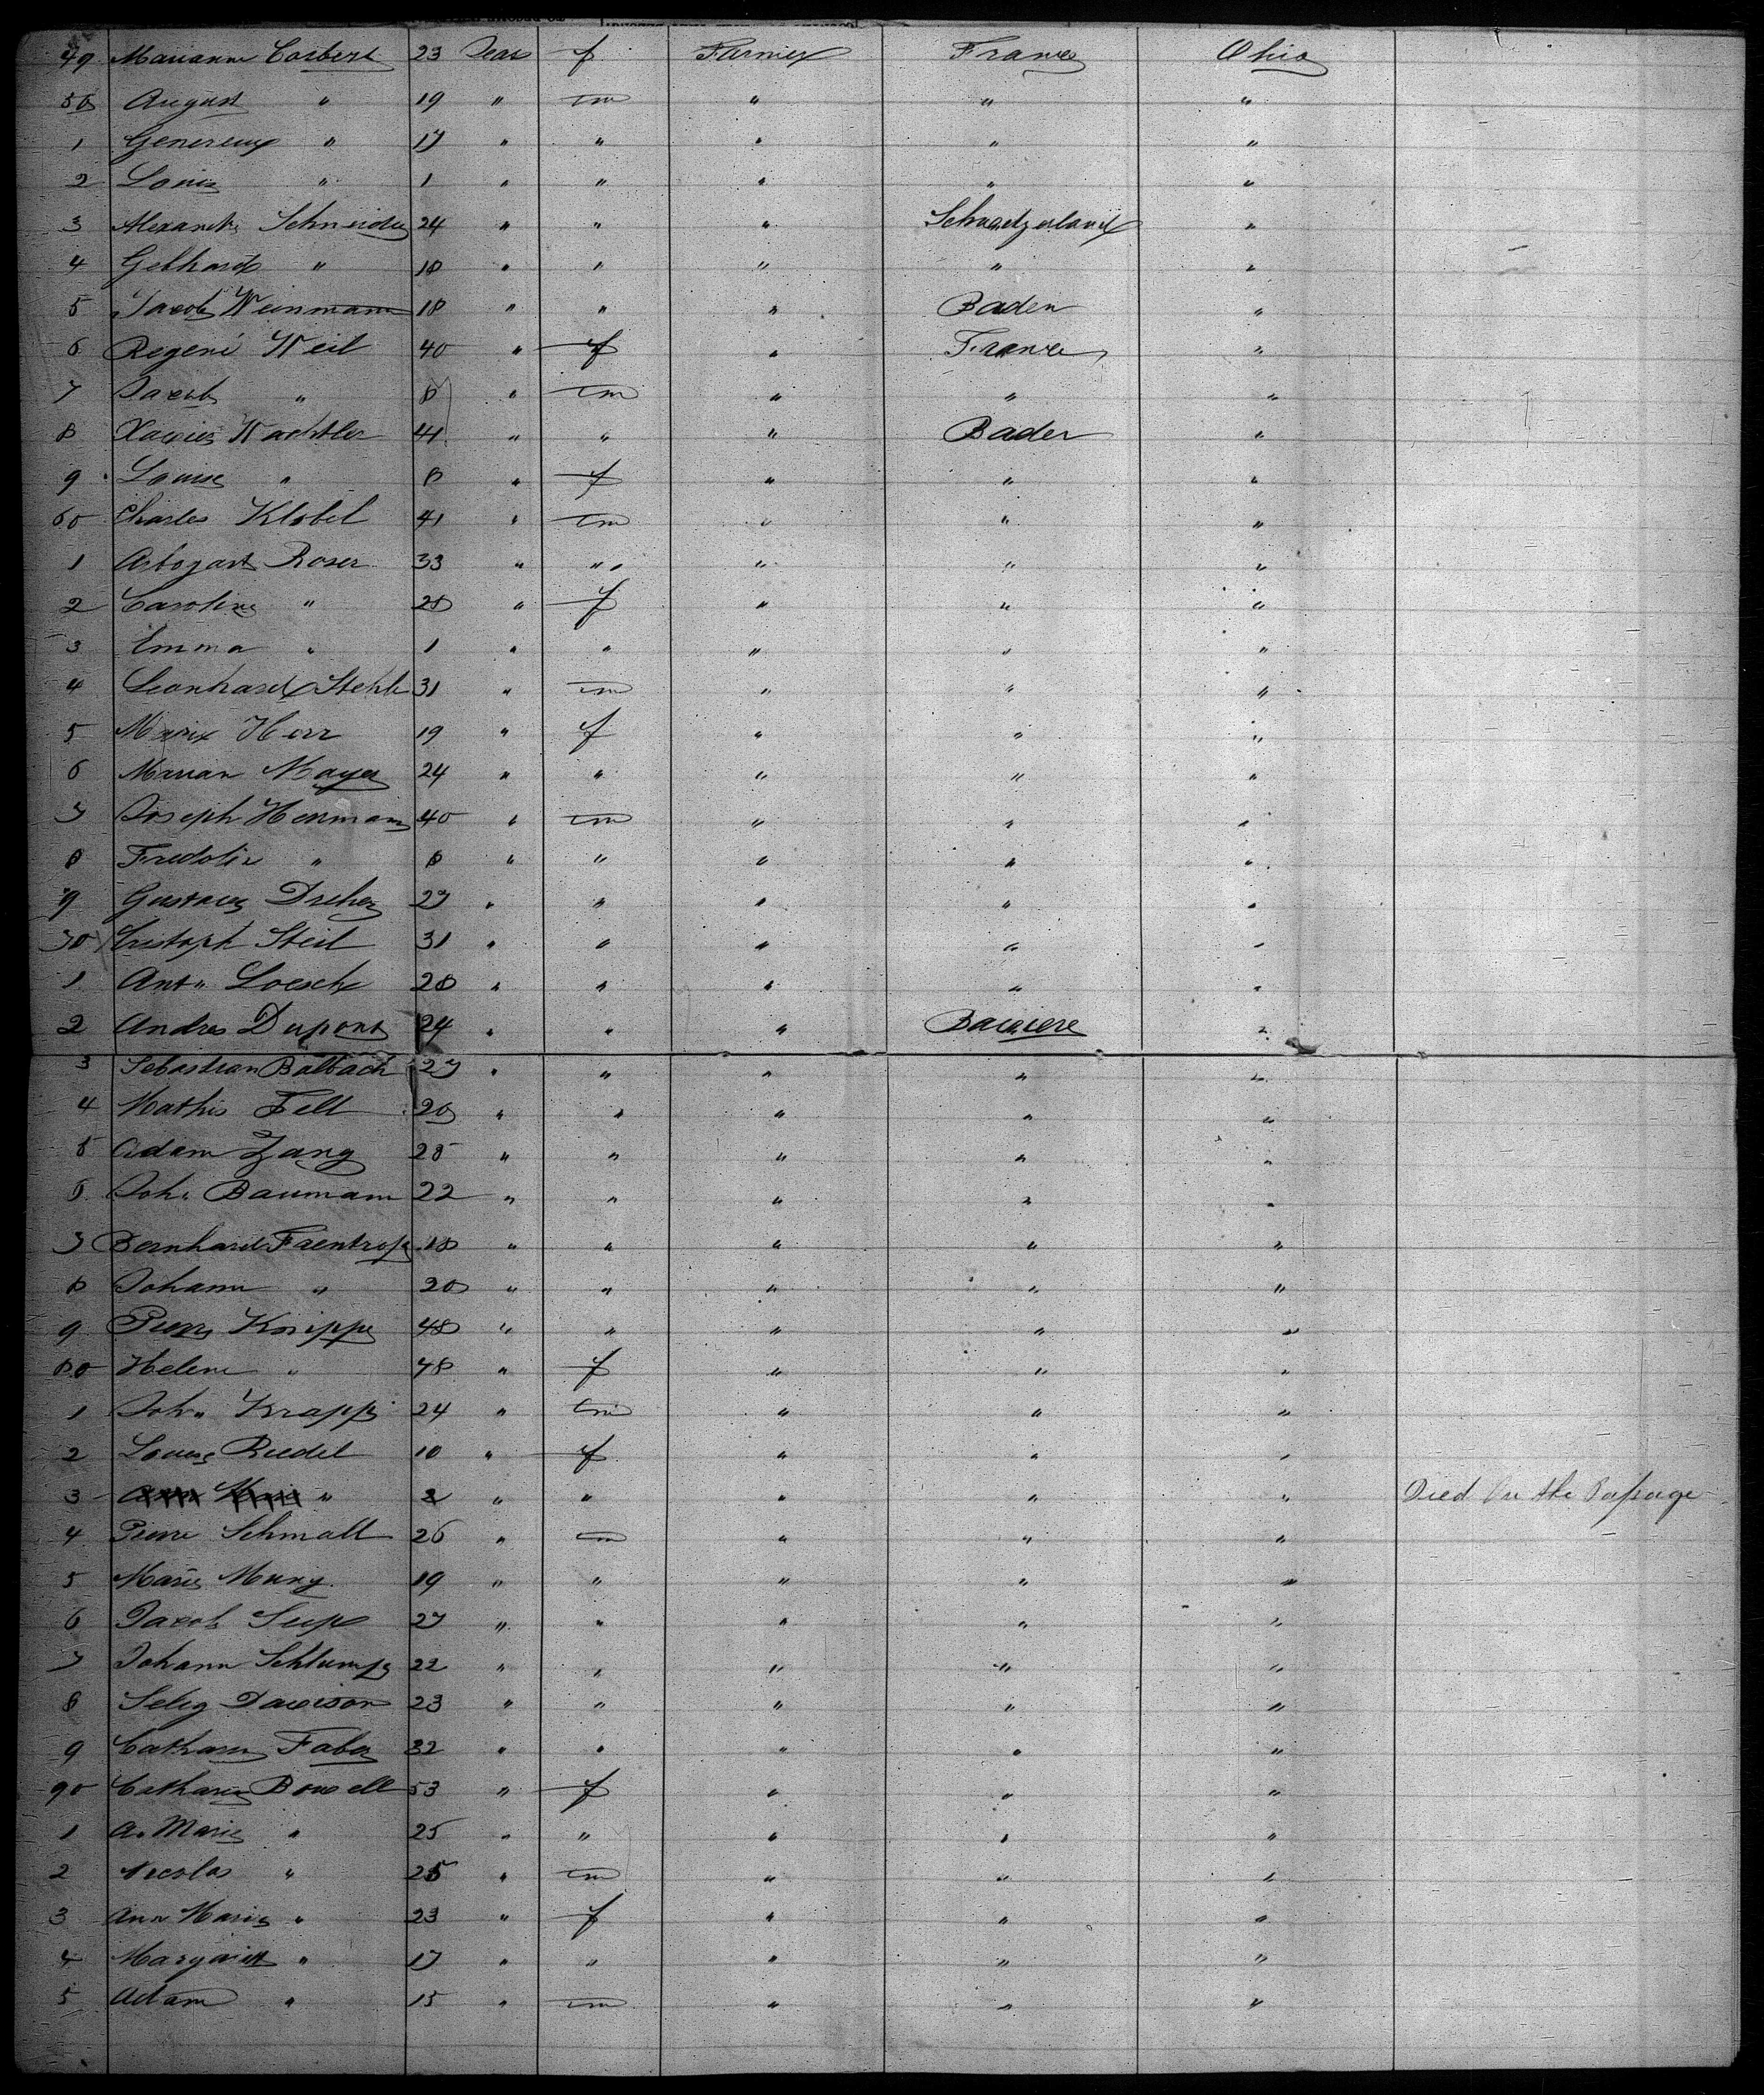 49 Mariann Corbert 23 Year f Farmer France Ohio
50 August " 19 " m " " "
1 Genereux " 17 " " " " "
2 Louis " 1 " " " " "
3 Alexander Schneider 24 " " " Schwetzerland "
4 Gebhard " 18 " " " " "
5 Jacob Weinmann 18 " " " Baden "
6 Regene Weil 40 " f " France "
7 Jacob " 8 " m " " "
8 Xavier Wachtler 41 " " " Baden "
9 Louise " 8 " f " " "
60 Charles Klobel 41 " m " " "
1 Arbogast Roser 33 " " " " "
2 Caroline " 28 " f " " "
3 Emma " 1 " " " " "
4 Leonhard Stehle 31 " m " " "
5 Marie Herr 19 " f " " "
6 Marian Mayer 24 " " " " "
7 Joseph Hermann 40 " m " " "
8 Fredolin " 8 " " " " "
9 Gustave Dreher 27 " " " " "
70 Cristoph Steil 31 " " " " "
1 Ant" Loesch 28 " " " " "
2 Andres Dupont 24 " " " Baviere "
3 Sebastian Balbach 27 " " " " "
4 Mathis Fell 20 " " " " "
5 Adam Zang 25 " " " " "
6 Joh" Baumann 22 " " " " "
7 Bernhard Faentrop 18 " " " " "
8 Johann " 20 " " " " "
9 Pierre Knippe 48 " " " " "
80 Helene " 48 " f " " "
1 Joh" Krapp 24 " m " " "
2 Louise Riedel 10 " f " " "
3 " 2 " " " " " Died On the Passage
4 Pierre Schmall 26 " m " " "
5 Marie Muny 19 " " " " "
6 Jacob Seip 27 " " " " "
7 Johann Schlumpf 22 " " " " "
8 Selig Davison 23 " " " " "
9 Cathari Faber 32 " " " " "
90 Catharie Bowell 53 " f " " "
1 A. Marie " 25 " " " " "
2 Nicolas " 25 " m " " "
3 Ann Marie " 23 " f " " "
4 Margarit " 17 " " " " "
5 Adam " 15 " m " " "